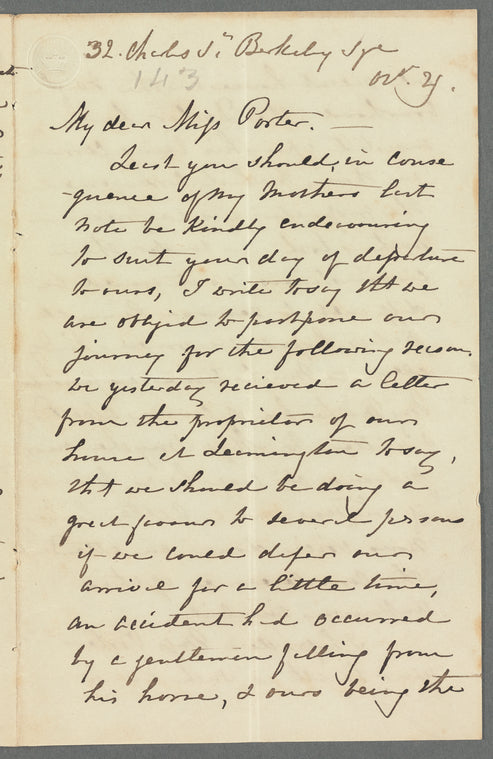 32. Charles St Berkeley Sqe
143
Oct. 21.
My dear Miss Porter. —
Least you should, in conse
-quence of my Mothers last
note be kindly endeavouring
to suit your day of departure
to ours, I write to say tht we
are obliged to postpone our
journey for the following reason.
we yesterday recieved a letter
from the proprietor of our
house at Leamington to say,
tht we should be doing a
great favour to several persons
if we could defer our
arrival for a little time,
an accident had occurred
by a gentleman falling from
his horse, & ours being the